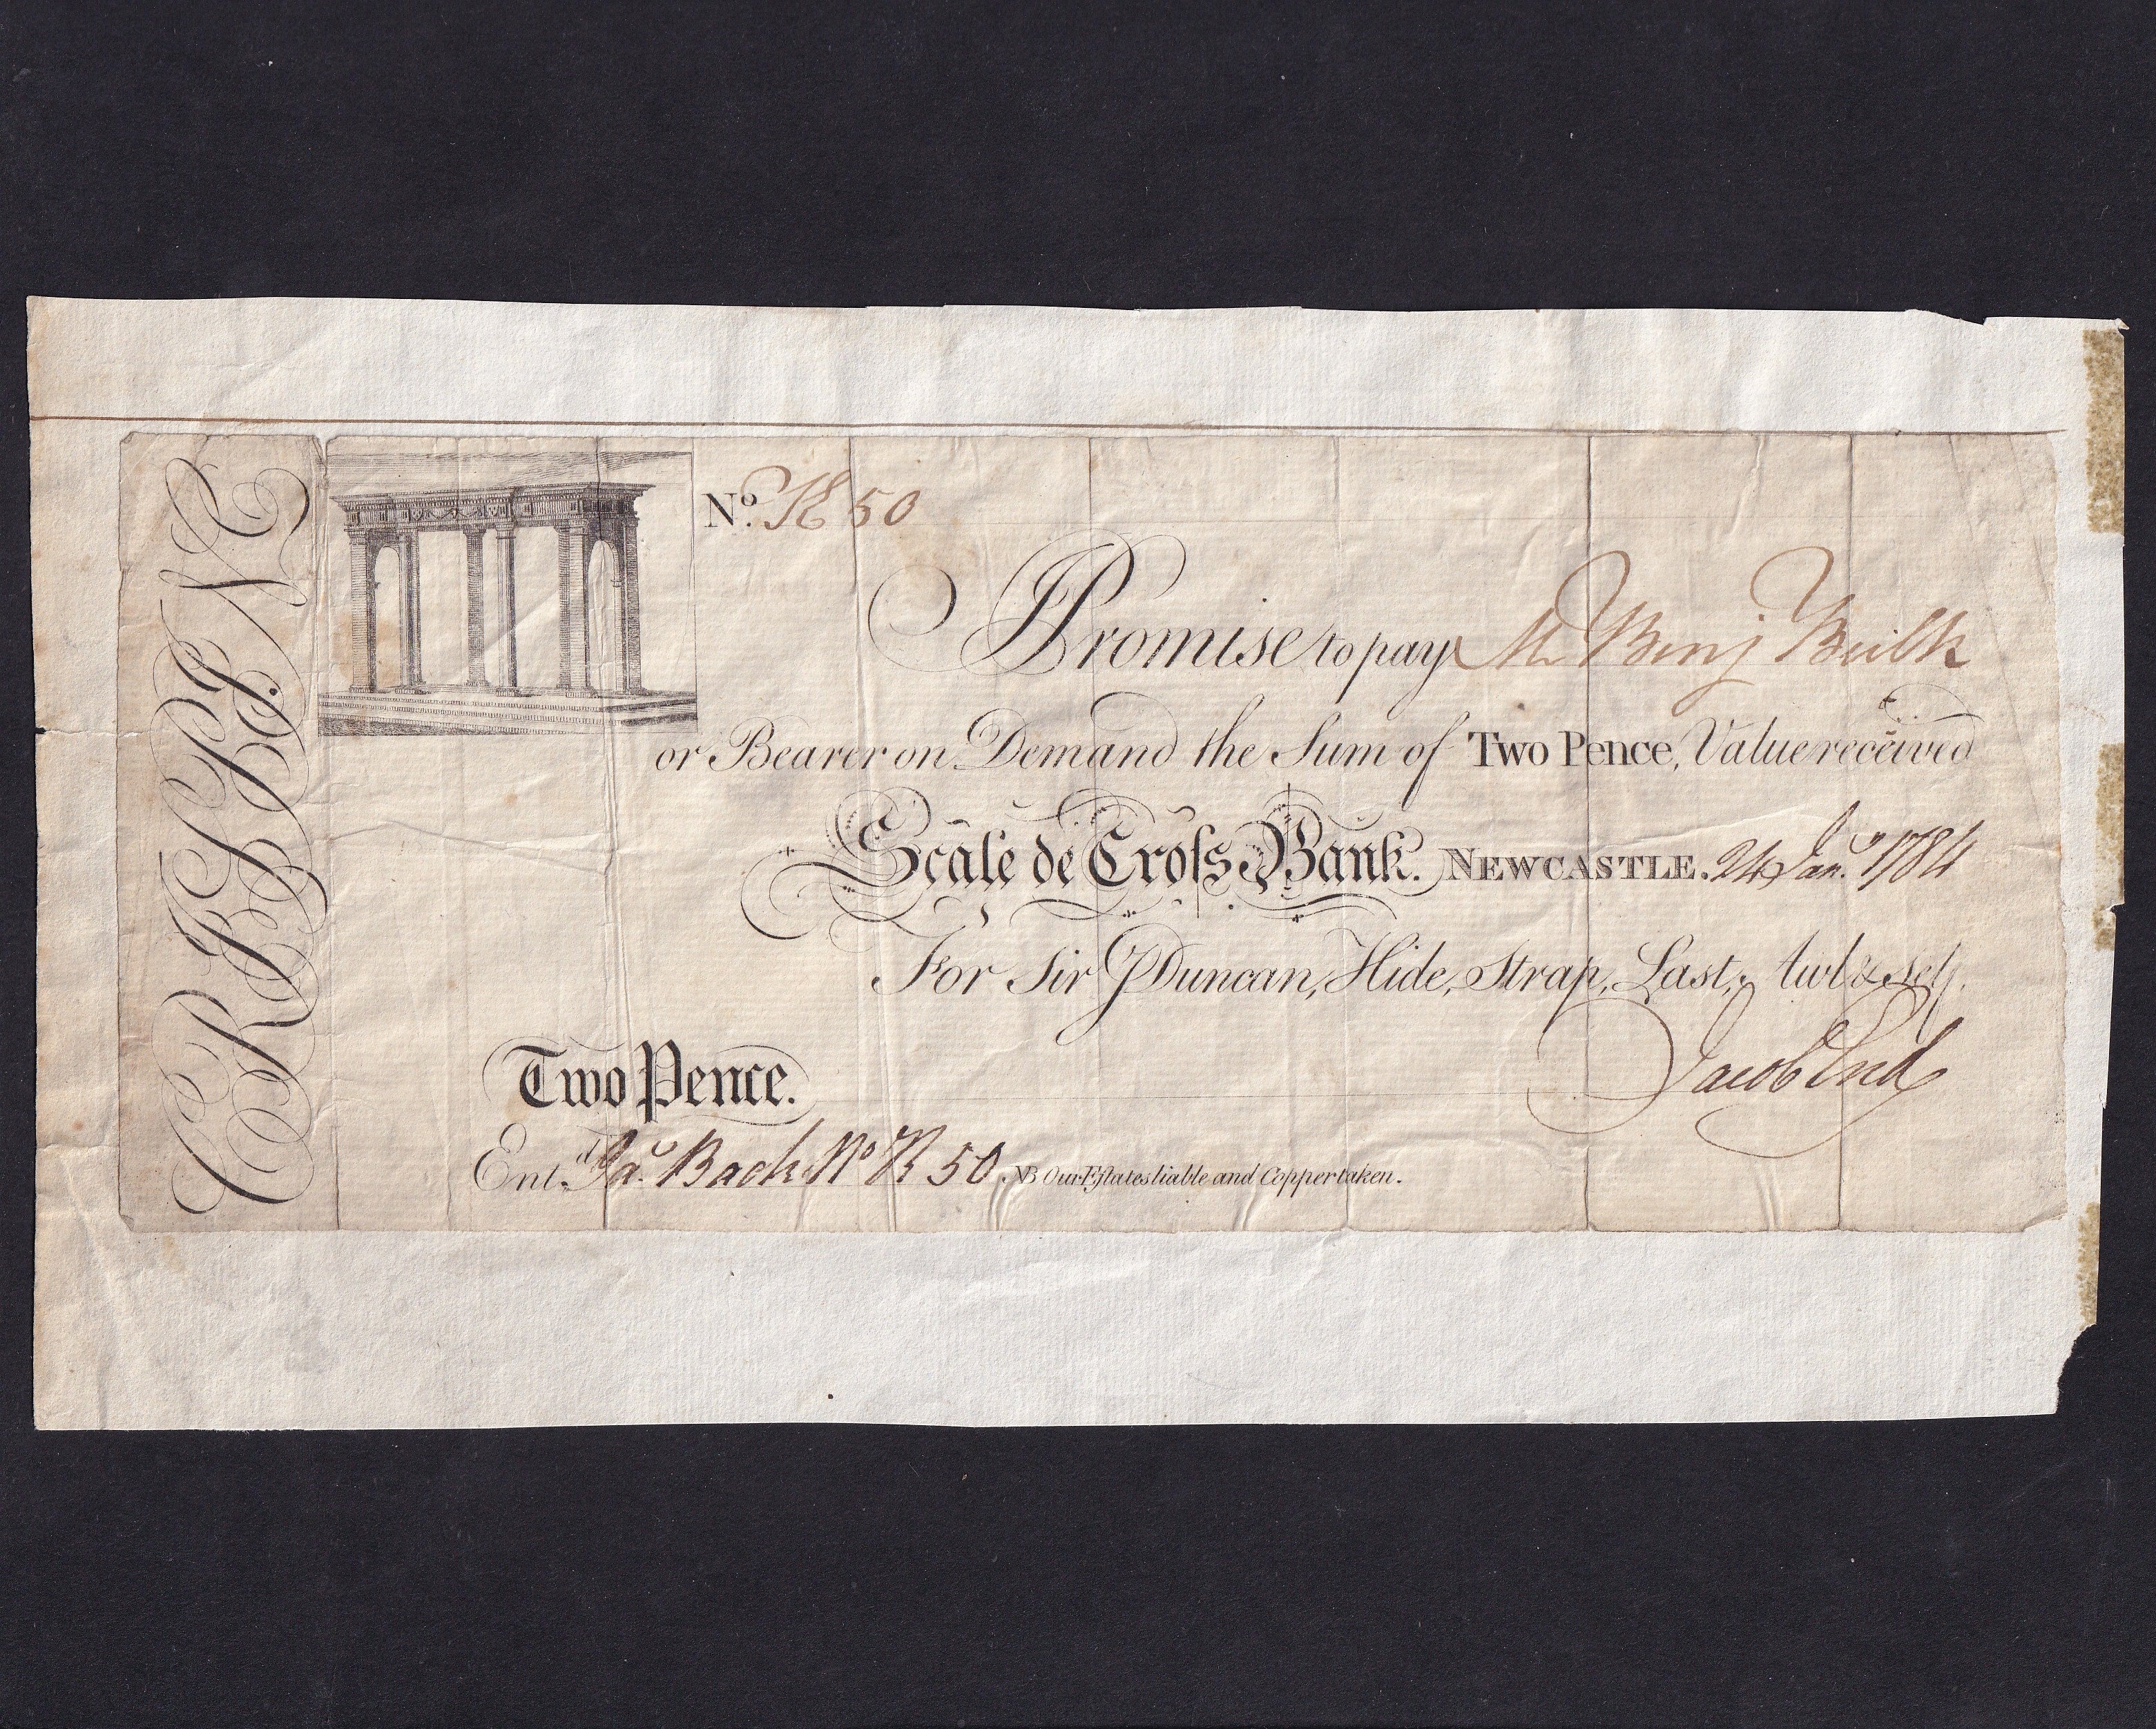 No. K 50
I Promise to pay Mr Benj Beilk
or Bearer on Demand the Sum of Two Pence, Value received
Scale de Croſs Bank. NEWCASTLE. 24 Jany. 1784
For Sir J Duncan, Hide, Strap, Last, Awl & Self.
Jacob End
Two Pence.
Entd. Ja. Back No K 50. NB Our Eſtates liable and Copper taken.